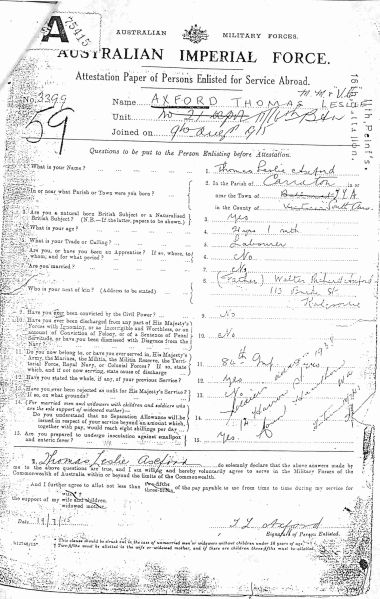 A
75415
AUSTRALIAN MILITARY FORCES.
AUSTRALIAN IMPERIAL FORCE.
Attestation Paper of Persons Enlisted for Service Abroad.
No. 3399 Name AXFORD THOMAS LESLIE
Unit
Joined on
59
16th Reinf's.
Battalion.
Questions to be put to the Person Enlisting before Attestation.
1. What is your Name? 1. Thomas Leslie Axford
2. In or near what Parish or Town were you born? 2. In the Parish of Carrieton in or
near the Town of
in the County of
3. Are you a natural born British Subject or a Naturalised British Subject? (N.B.—If the latter, papers to be shown) 3. Yes
4. What is your age? 4. 1 mth
5. What is your Trade or Calling? 5. Labourer
6. Are you, or have you been an Apprentice? If so, where, to whom, and for what period? 6. No
7. Are you married? 7. No
8. Who is your next of kin? (Address to be stated) 8. (Father) Walter Richard Axford
113 St
Kalgoorlie
9. Have you ever been convicted by the Civil Power? 9. No
10. Have you ever been discharged from any part of His Majesty's Forces with Ignominy, or as Incorrigible and Worthless, or on account of Conviction of Felony, or of a Sentence of Penal Servitude, or have you been dismissed with Disgrace from the Navy? 10. No
11. Do you now belong to, or have you ever served in, His Majesty's Army, the Marines, the Militia, the Militia Reserve, the Territorial Force, Royal Navy, or Colonial Forces? If so, state which, and if not now serving, state cause of discharge 11. 84th Inf
12. Have you stated the whole, if any, of your previous Service? 12. Yes
13. Have you ever been rejected as unfit for His Majesty's Service? If so, on what grounds? 13.
14. (For married men and widowers with children and soldiers who are the sole support of widowed mother)—
Do you understand that no Separation Allowance will be issued in respect of your service beyond an amount which, together with pay, would reach eight shillings per day 14.
15. Are you prepared to undergo inoculation against smallpox and enteric fever? 15. Yes
I, Thomas Leslie Axford do solemnly declare that the above answers made by
me to the above questions are true, and I am willing and hereby voluntarily agree to serve in the Military Forces of the
Commonwealth of Australia within or beyond the limits of the Commonwealth.
And I further agree to allot not less than two-fifths three-fifths of the pay payable to me from time to time during my service for
the support of my wife wife and children widowed mother.
Date 19/7/15 T L Axford
Signature of Person Enlisted.
* This clause should be struck out in the case of unmarried men or widowers without children under 18 years of age.
† Two-fifths must be allotted to the wife or widowed mother, and if there are children three-fifths must be allotted.